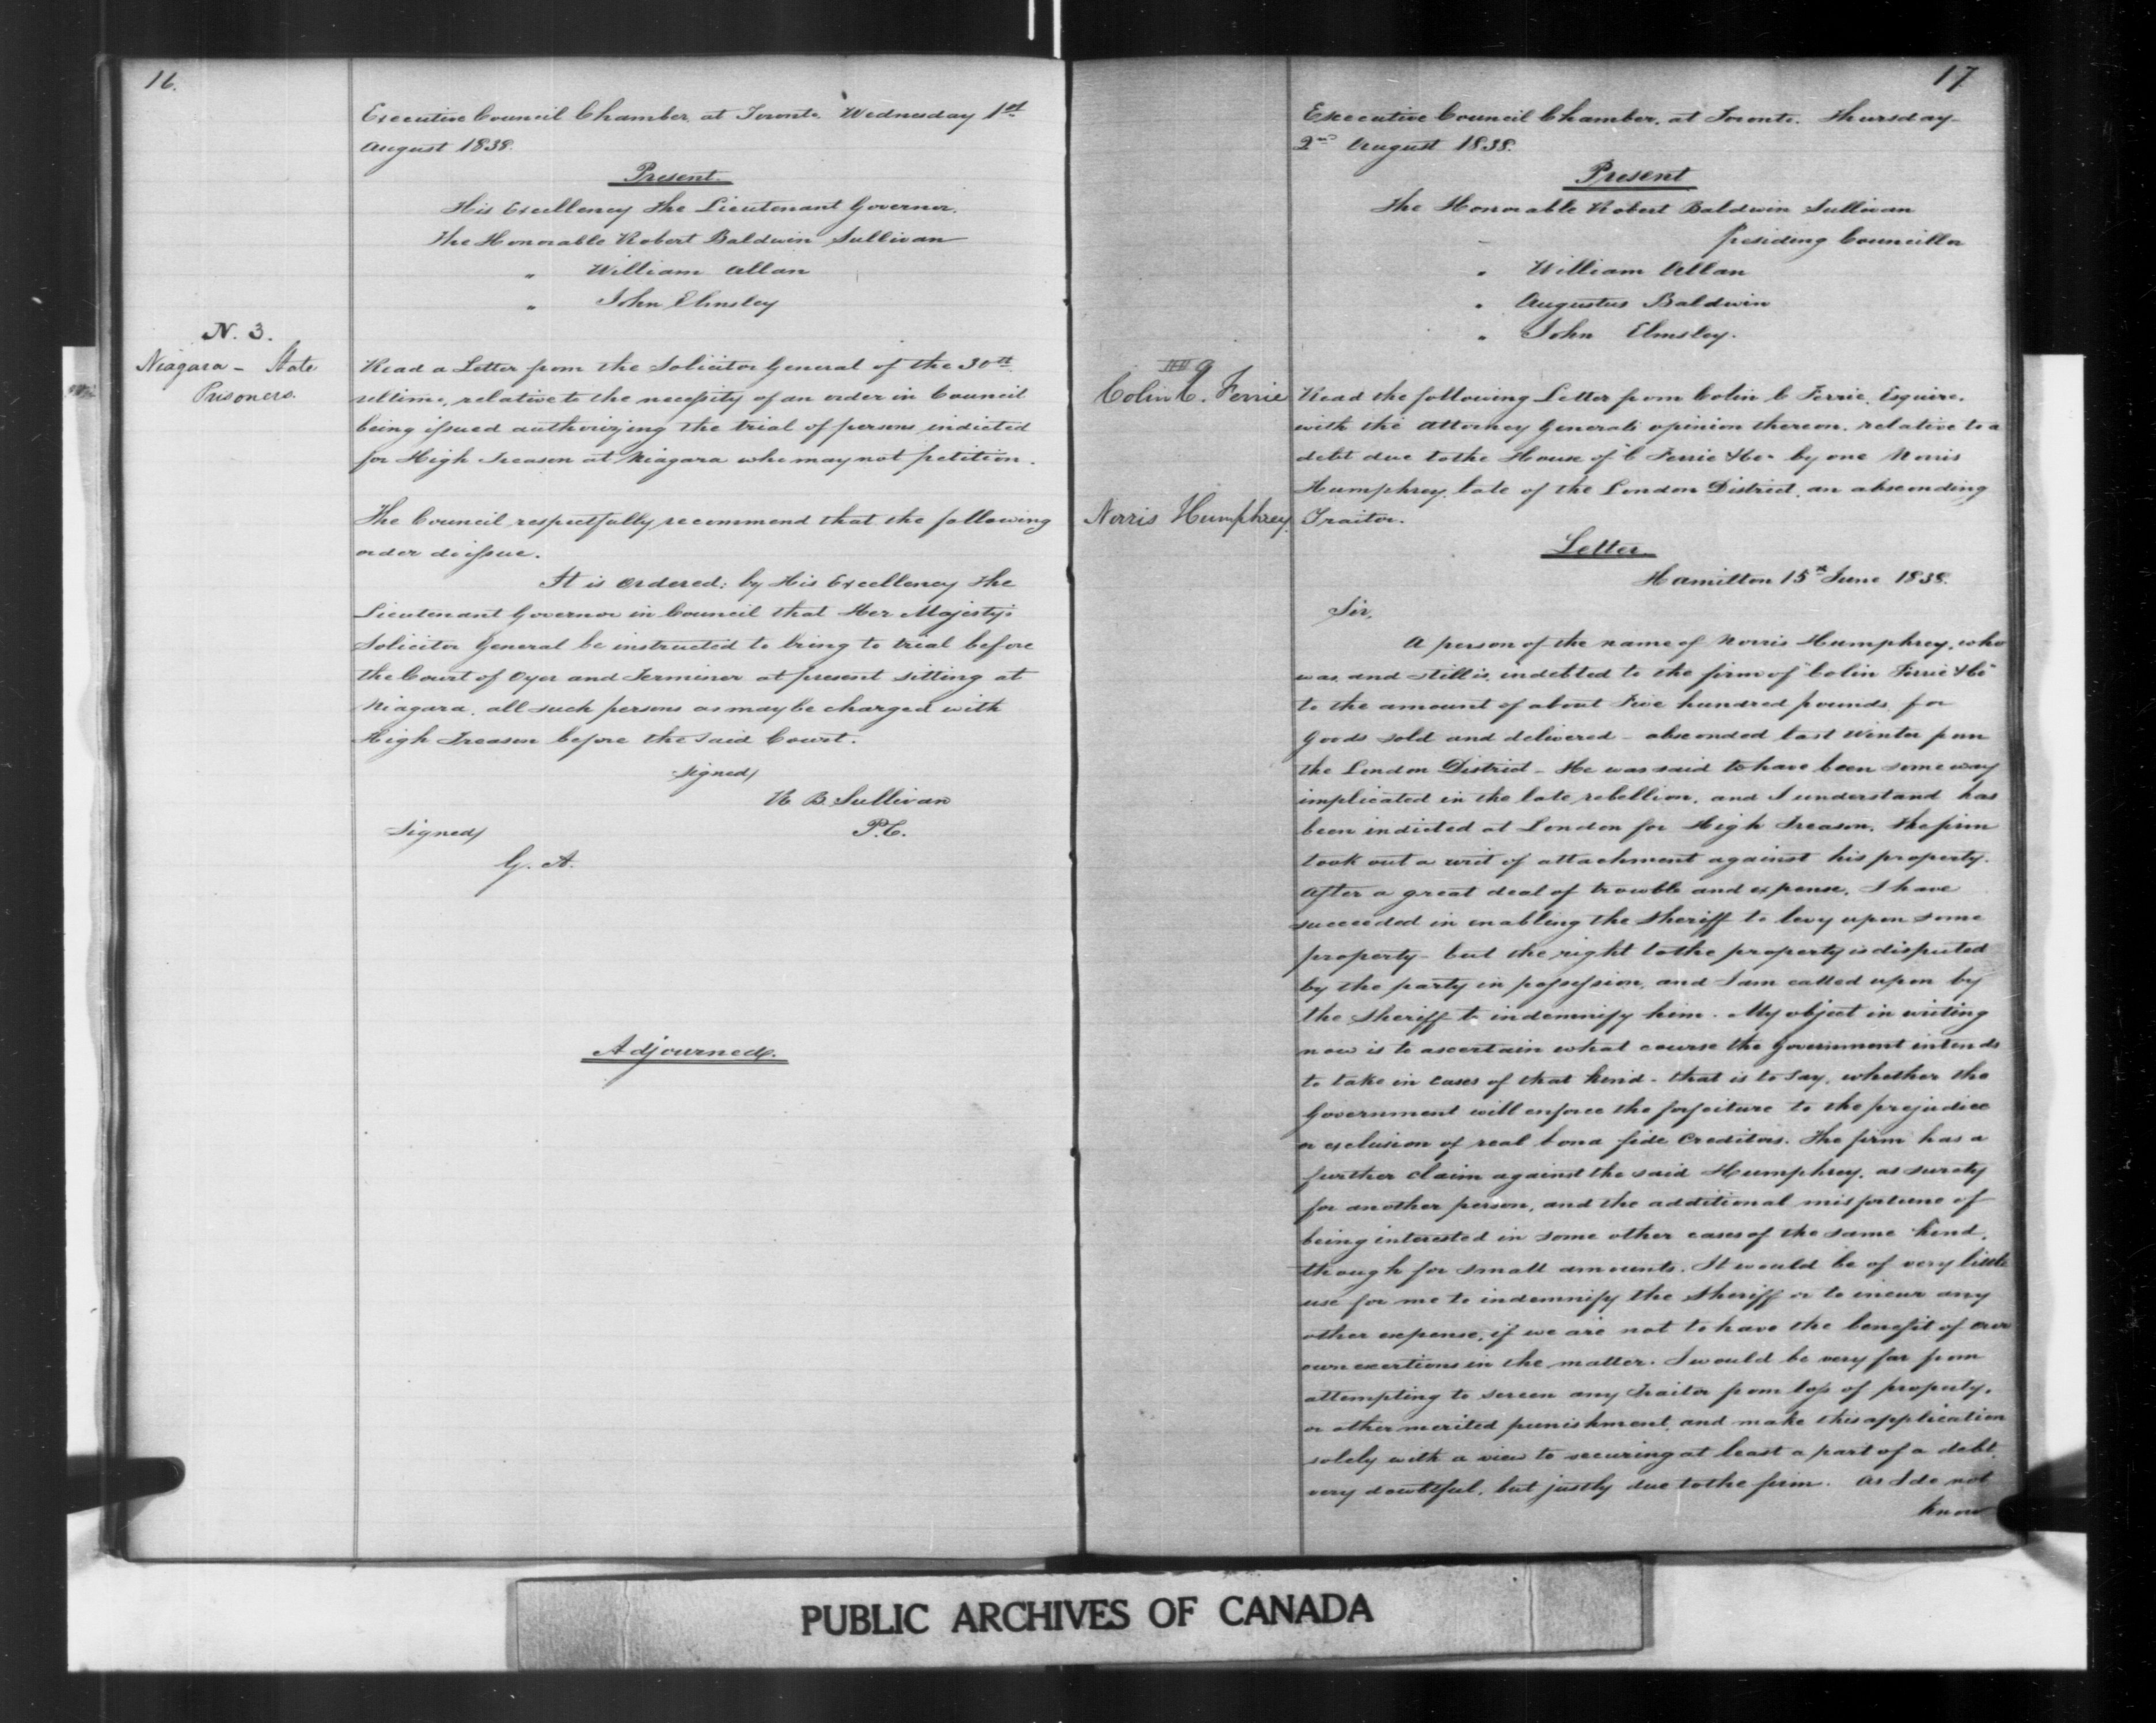 16.
Executive Council Chamber, at Toronto. Wednesday 1st
August 1838.
Present.
His Excellency the Lieutenant Governor.
The Honorable Robert Baldwin Sullivan
" William Allan
" John Elmsley
N. 3.
Niagara - State
Prisoners.
Read a Letter from the Solicitor General of the 30th
ultimo, relative to the necessity of an order in Council
being issued authorizing the trial of persons indicted
for High Treason at Niagara who may not petition.
The Council respectfully recommend that the following
order do issue.
It is Ordered; by His Excellency the
Lieutenant Governor in Council that Her Majesty's
Solicitor General be instructed to bring to trial before
the Court of Oyer and Terminer at present sitting at
Niagara, all such persons as may be charged with
High Treason before the said Court.
Signed/
R B. Sullivan
P.C.
Signed/
G. A.
Adjourned.
17
Executive Council Chamber, at Toronto. Thursday
2nd August 1838.
Present
The Honorable Robert Baldwin Sullivan
Presiding Councillor
" William Allan
" Augustus Baldwin
" John Elmsley.
Colin C. Ferrie
Norris Humphrey.
Read the following Letter from Colin C Ferrie, Esquire.
with the Attorney Generals opinion thereon, relative to a
debt due to the House of C Ferrie & Co. by one Norris
Humphrey, late of the London District, an absconding
Traitor.
Letter
Hamilton 15th June 1838.
Sir,
A person of the name of Norris Humphrey, who
was, and still is, indebted to the firm of "Colin Ferrie & Co"
to the amount of about Five hundred pounds, for
goods sold and delivered - absconded last Winter from
the London District - He was said to have been some way
implicated in the late rebellion, and I understand has
been indicted at London for High Treason. The firm
took out a writ of attachment against his property.
After a great deal of trouble and expense, I have
succeeded in enabling the Sheriff to levy upon some
property - but the right to the property is disputed
by the party in possession, and I am called upon by
the Sheriff to indemnify him. My object in writing
now is to ascertain what course the Government intends
to take in cases of that kind - that is to say, whether the
Government will enforce the forfeiture to the prejudice
or exclusion of real bona fide Creditors. The firm has a
further claim against the said Humphrey, as surety
for another person, and the additional misfortune of
being interested in some other cases of the same kind,
though for small amounts. It would be of very little
use for me to indemnify the Sheriff or to incur any
other expense, if we are not to have the benefit of our
own exertions in the matter. I would be very far from
attempting to screen any Traitor from loss of property,
or other merited punishment, and make this application
solely with a view to securing at least a part of a debt,
very doubtful, but justly due to the firm. As I do not
know
PUBLIC ARCHIVES OF CANADA